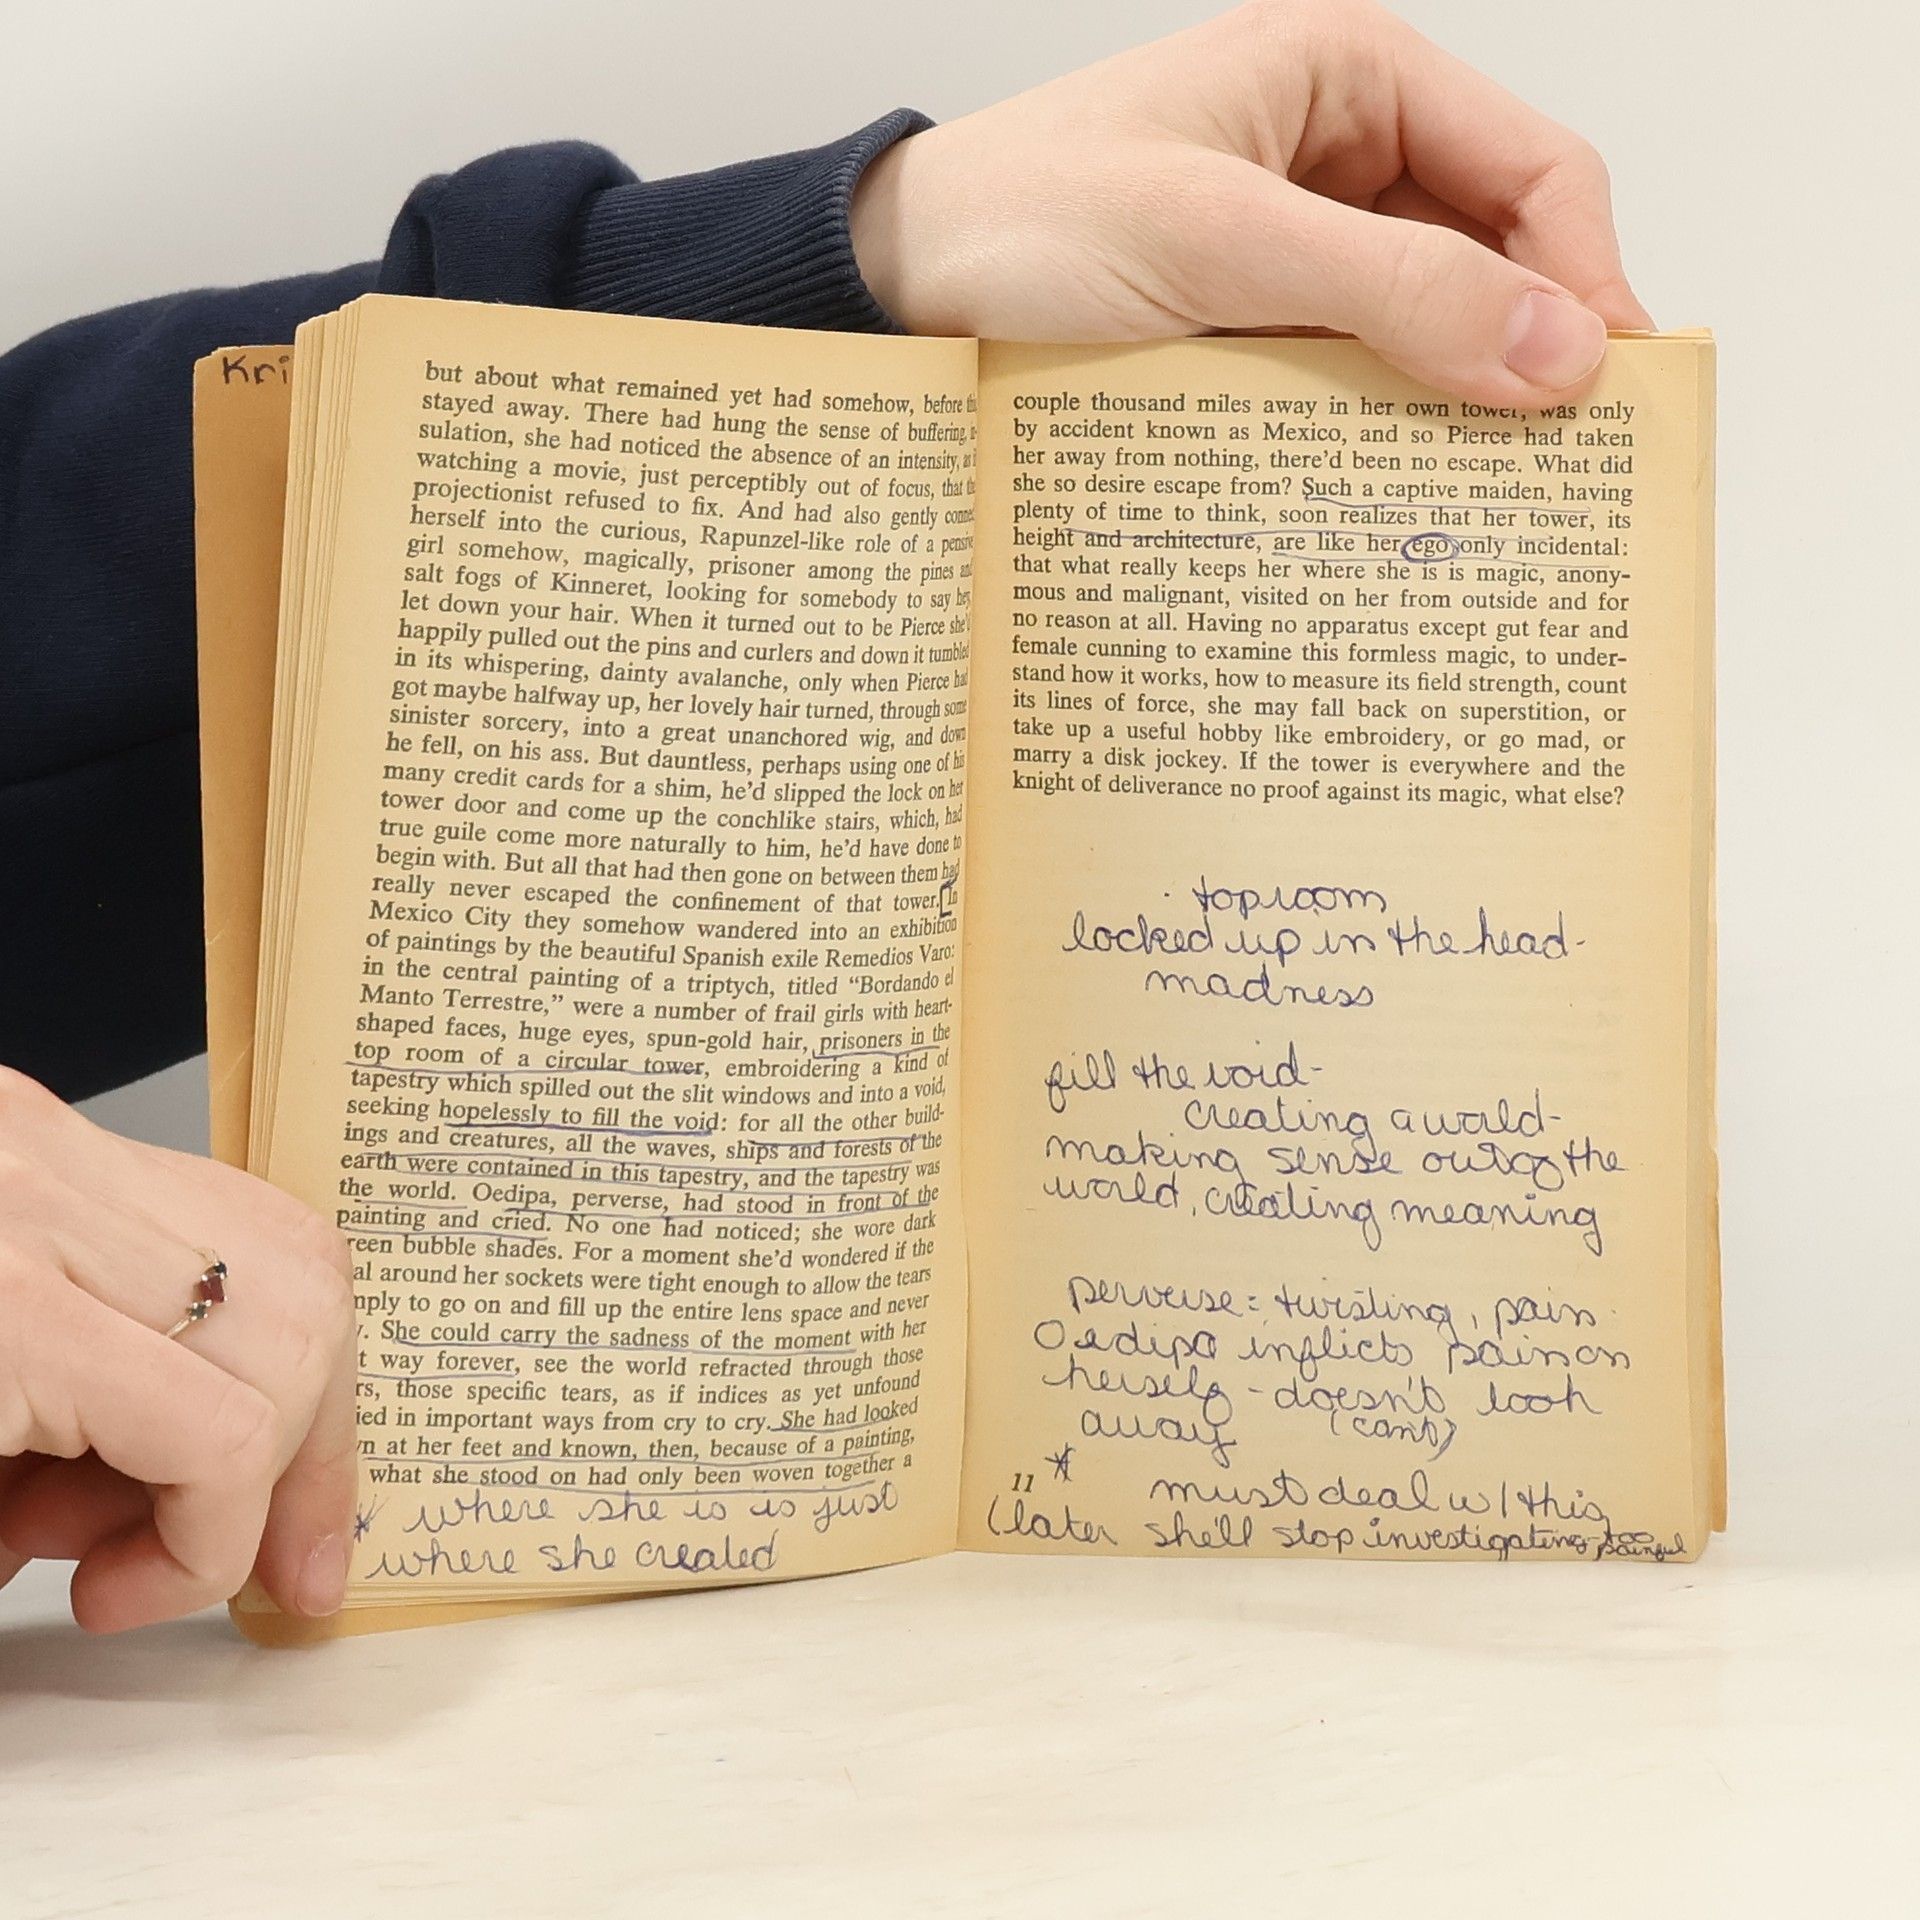 Kri
but about what remained yet had somehow, before
stayed away. There had hung the sense of buffering, in-
sulation, she had noticed the absence of an intensity, as i
watching a movie, just perceptibly out of focus, that th
projectionist refused to fix. And had also gently conne
herself into the curious, Rapunzel-like role of a pensive
girl somehow, magically, prisoner among the pines and
salt fogs of Kinneret, looking for somebody to say hey,
let down your hair. When it turned out to be Pierce she'd
happily pulled out the pins and curlers and down it tumbled
in its whispering, dainty avalanche, only when Pierce had
got maybe halfway up, her lovely hair turned, through some
sinister sorcery, into a great unanchored wig, and down
he fell, on his ass. But dauntless, perhaps using one of his
many credit cards for a shim, he'd slipped the lock on her
tower door and come up the conchlike stairs, which, had
true guile come more naturally to him, he'd have done to
begin with. But all that had then gone on between them had
really never escaped the confinement of that tower. In
Mexico City they somehow wandered into an exhibition
of paintings by the beautiful Spanish exile Remedios Varo:
in the central painting of a triptych, titled "Bordando el
Manto Terrestre," were a number of frail girls with heart-
shaped faces, huge eyes, spun-gold hair, prisoners in the
top room of a circular tower, embroidering a kind of
tapestry which spilled out the slit windows and into a void,
seeking hopelessly to fill the void: for all the other build-
ings and creatures, all the waves, ships and forests of the
earth were contained in this tapestry, and the tapestry was
the world. Oedipa, perverse, had stood in front of the
painting and cried. No one had noticed; she wore dark
reen bubble shades. For a moment she'd wondered if the
al around her sockets were tight enough to allow the tears
mply to go on and fill up the entire lens space and never
y. She could carry the sadness of the moment with her
t way forever, see the world refracted through those
rs, those specific tears, as if indices as yet unfound
ied in important ways from cry to cry. She had looked
wn at her feet and known, then, because of a painting,
what she stood on had only been woven together a
* where she is is just
where she created
couple thousand miles away in her own tower, was only
by accident known as Mexico, and so Pierce had taken
her away from nothing, there'd been no escape. What did
she so desire escape from? Such a captive maiden, having
plenty of time to think, soon realizes that her tower, its
height and architecture, are like her ego only incidental:
that what really keeps her where she is is magic, anony-
mous and malignant, visited on her from outside and for
no reason at all. Having no apparatus except gut fear and
female cunning to examine this formless magic, to under-
stand how it works, how to measure its field strength, count
its lines of force, she may fall back on superstition, or
take up a useful hobby like embroidery, or go mad, or
marry a disk jockey. If the tower is everywhere and the
knight of deliverance no proof against its magic, what else?
· top room
locked up in the head-
madness
fill the void-
creating a world-
making sense out of the
world, creating meaning
perverse = twisting, pain
Oedipa inflicts pain on
herself - doesn't look
away (can't)
* must deal w/ this
11
(later she'll stop investigating-too
painful